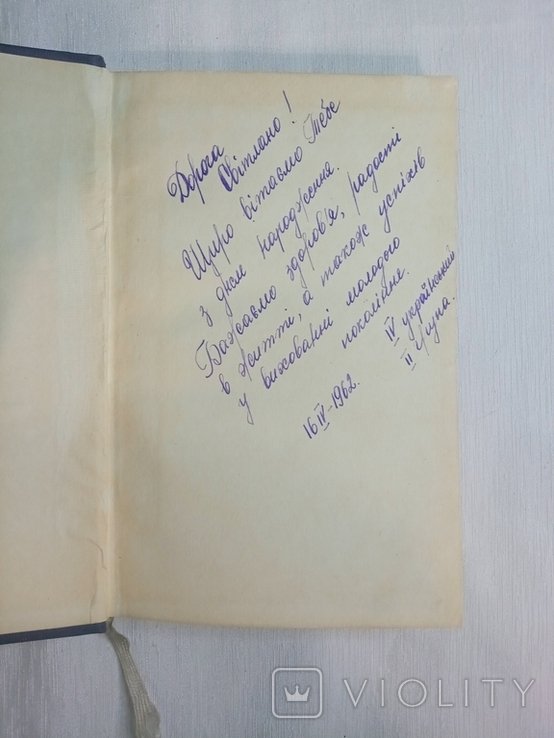 Дорога
Світлано!
Щиро вітаємо Тебе
з днем народження.
Бажаємо здоров'я, радості
в житті, а також успіхів
у вихованні молодого
покоління.
16 IV-1962.
IV український
II група.
VIOLITY